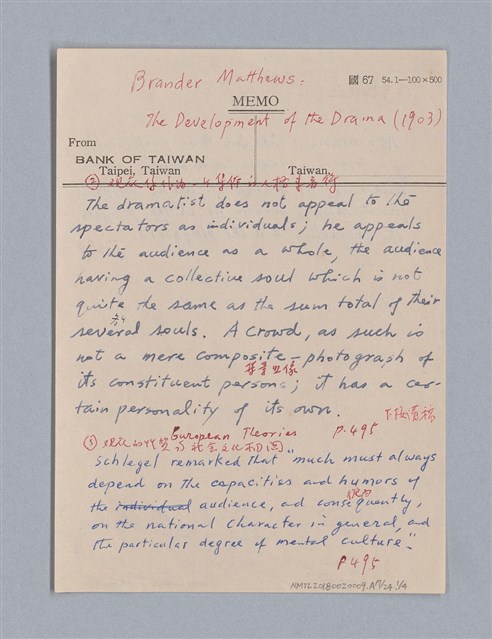 Brander Matthews:
國 67 54.1—100×500
MEMO
The Development of the Drama (1903)
From
BANK OF TAIWAN
Taipei, Taiwan Taiwan.
②
The dramatist does not appeal to the
spectators as individuals; he appeals
to the audience as a whole, the audience
having a collective soul which is not
quite the same as the sum total of their
several souls. A crowd, as such is
not a mere composite-photograph of
its constituent persons; it has a cer-
tain personality of its own.
European Theories P.495
Schlegel remarked that "much must always
depend on the capacities and humors of
the individual audience, and consequently,
on the national character in general, and
the particular degree of mental culture."
P495
NMTL20180020009